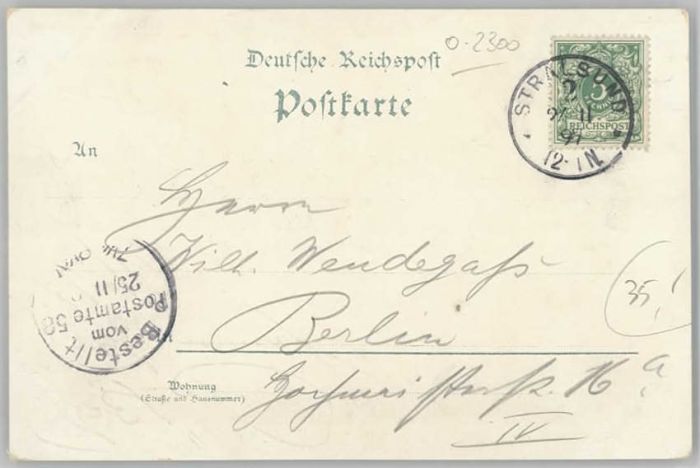 0-2300
Deutsche Reichspost
Postkarte
STRALSUND
2
11
12-1N.
5
PFENNIG
REICHSPOST
An
Herrn
Wilh. Wendegaß
Berlin
16 a
IV
Wohnung
(Straße und Hausnummer)
Bestellt
vom
Postamte 58
25/11
35,